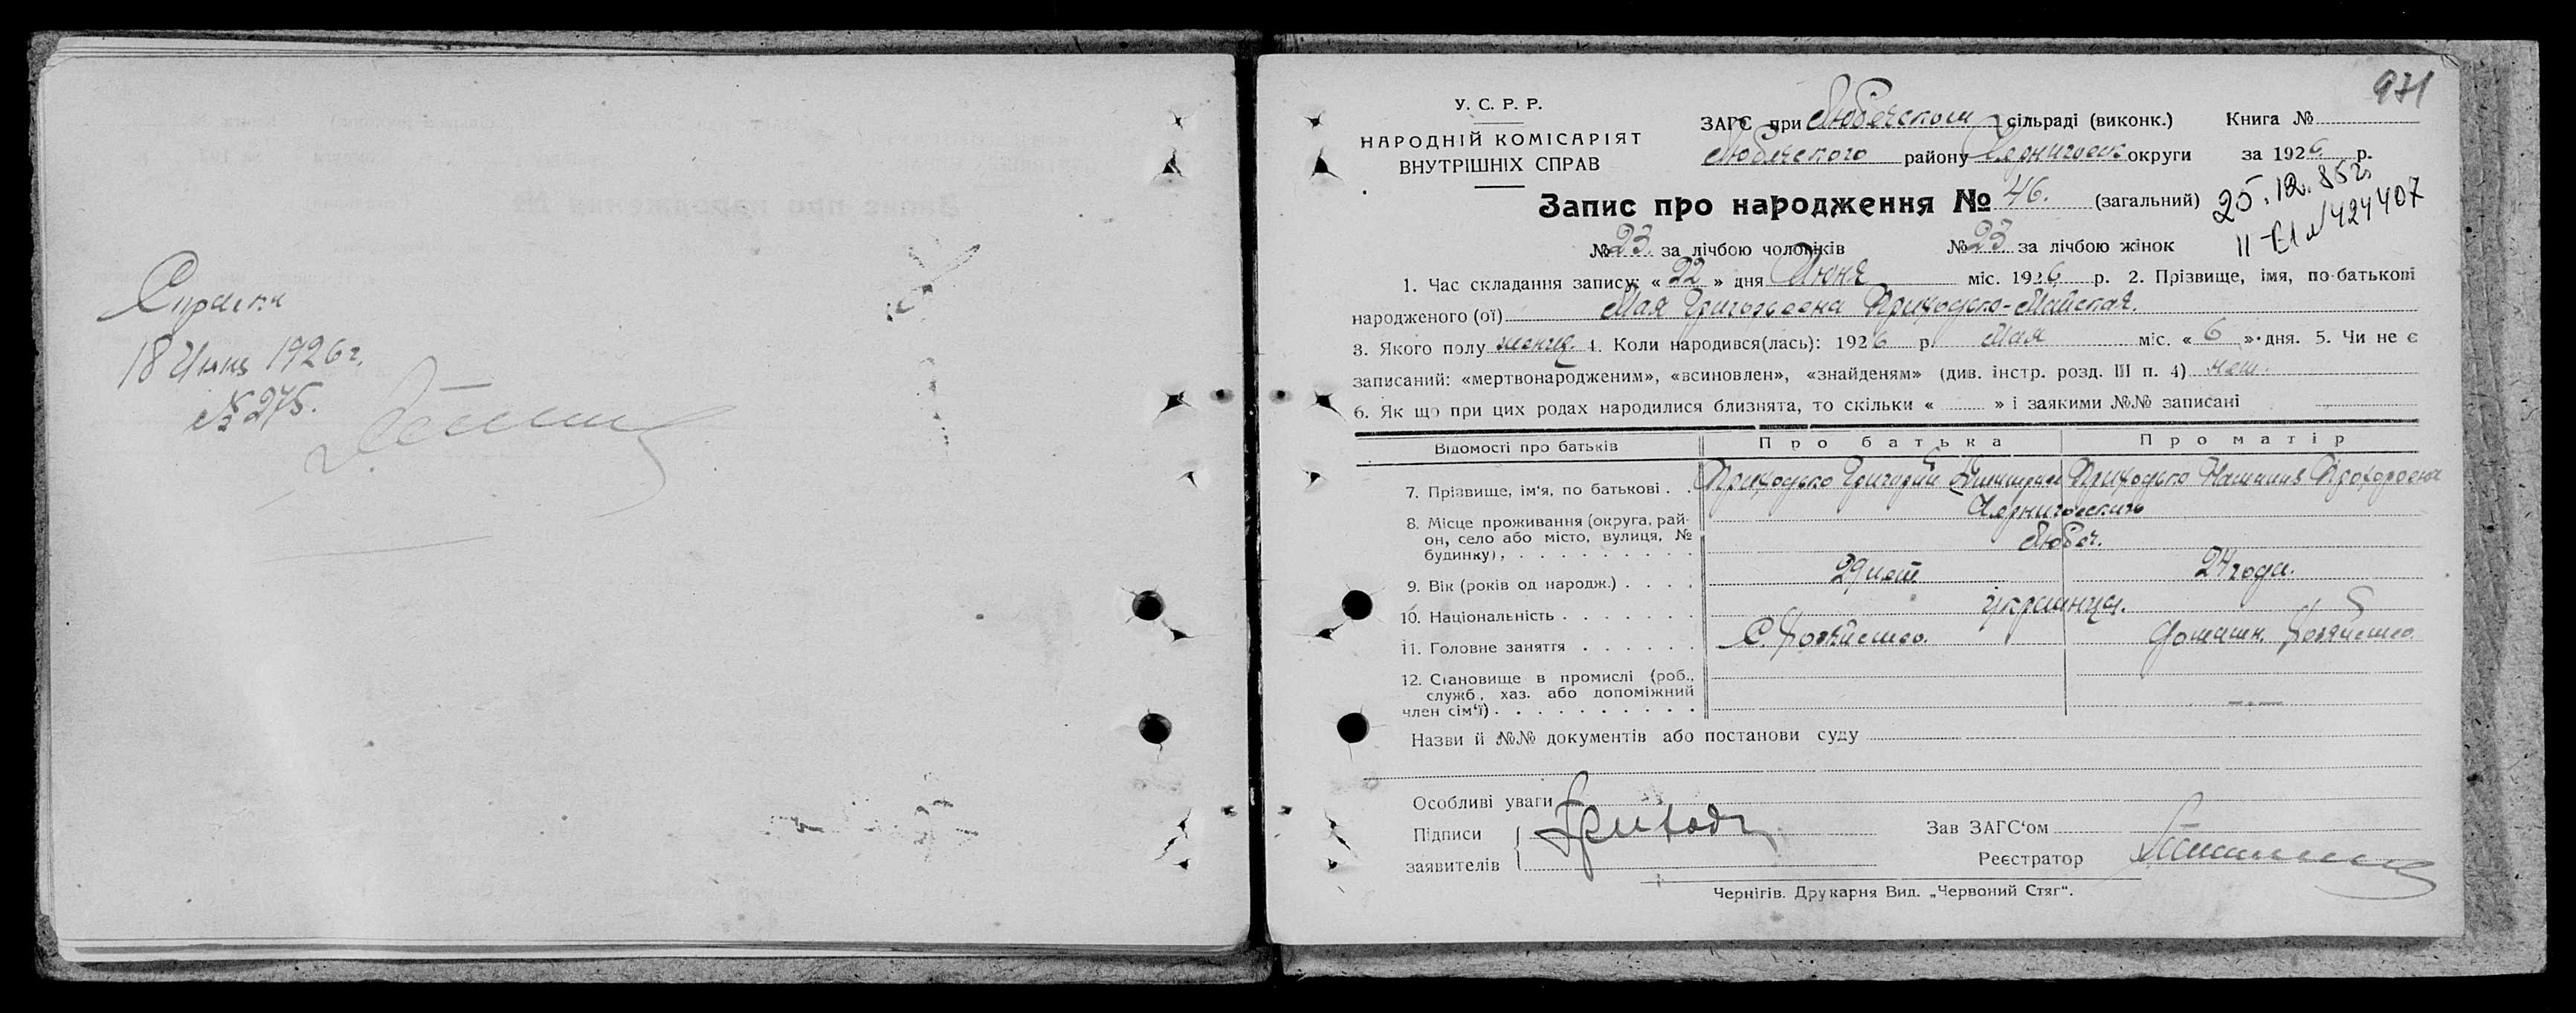 Справка
18 Июня 1926 г.
№ 275.
971
У. С. Р. Р.
НАРОДНІЙ КОМІСАРІЯТ
ВНУТРІШНІХ СПРАВ
ЗАГС при Любечском сільраді (виконк.) Книга №
Любечского району Черниговск округи за 1926 р.
Запис про народження № 46. (загальний)
25.12.85г.
II-ЕЛ № 424407
№ 23 за лічбою чоловіків № 23 за лічбою жінок
1. Час складання запису: « 22 » дня Июня міс. 1926 р. 2. Прізвище, імя, по-батькові
народженого (ої) Мая Григорьевна Приходько-Майская.
3. Якого полу женщ. 4. Коли народився(лась): 1926 р. Мая міс. « 6 » дня. 5. Чи не є
записаний: «мертвонародженим», «всиновлен», «знайденям» (див. інстр. розд. III п. 4) нет.
6. Як що при цих родах народилися близнята, то скільки « » і заякими №№ записані
Відомості про батьків Про батька Про матір
7. Прізвище, ім'я, по батькові . . Приходько Григорий Дмитриев Приходько Наталия Прохоровна
8. Місце проживання (округа, рай-
он, село або місто, вулиця, №
будинку), . . . . . . . . . .
Черниговский
Любеч.
9. Вік (років од народж.) . . . . 29 лет 24 года.
10. Національність . . . . . . . украинцы.
11. Головне заняття . . . . . . С. Хозяйство. домашн. хозяйство
12. Становище в промислі (роб.,
служб., хаз. або допоміжний
член сім'ї) . . . . . . . . . .
Назви й №№ документів або постанови суду
Особливі уваги
Підписи
заявителів
Приходь
Зав ЗАГС'ом
Реєстратор
Чернігів. Друкарня Вид. „Червоний Стяг“.